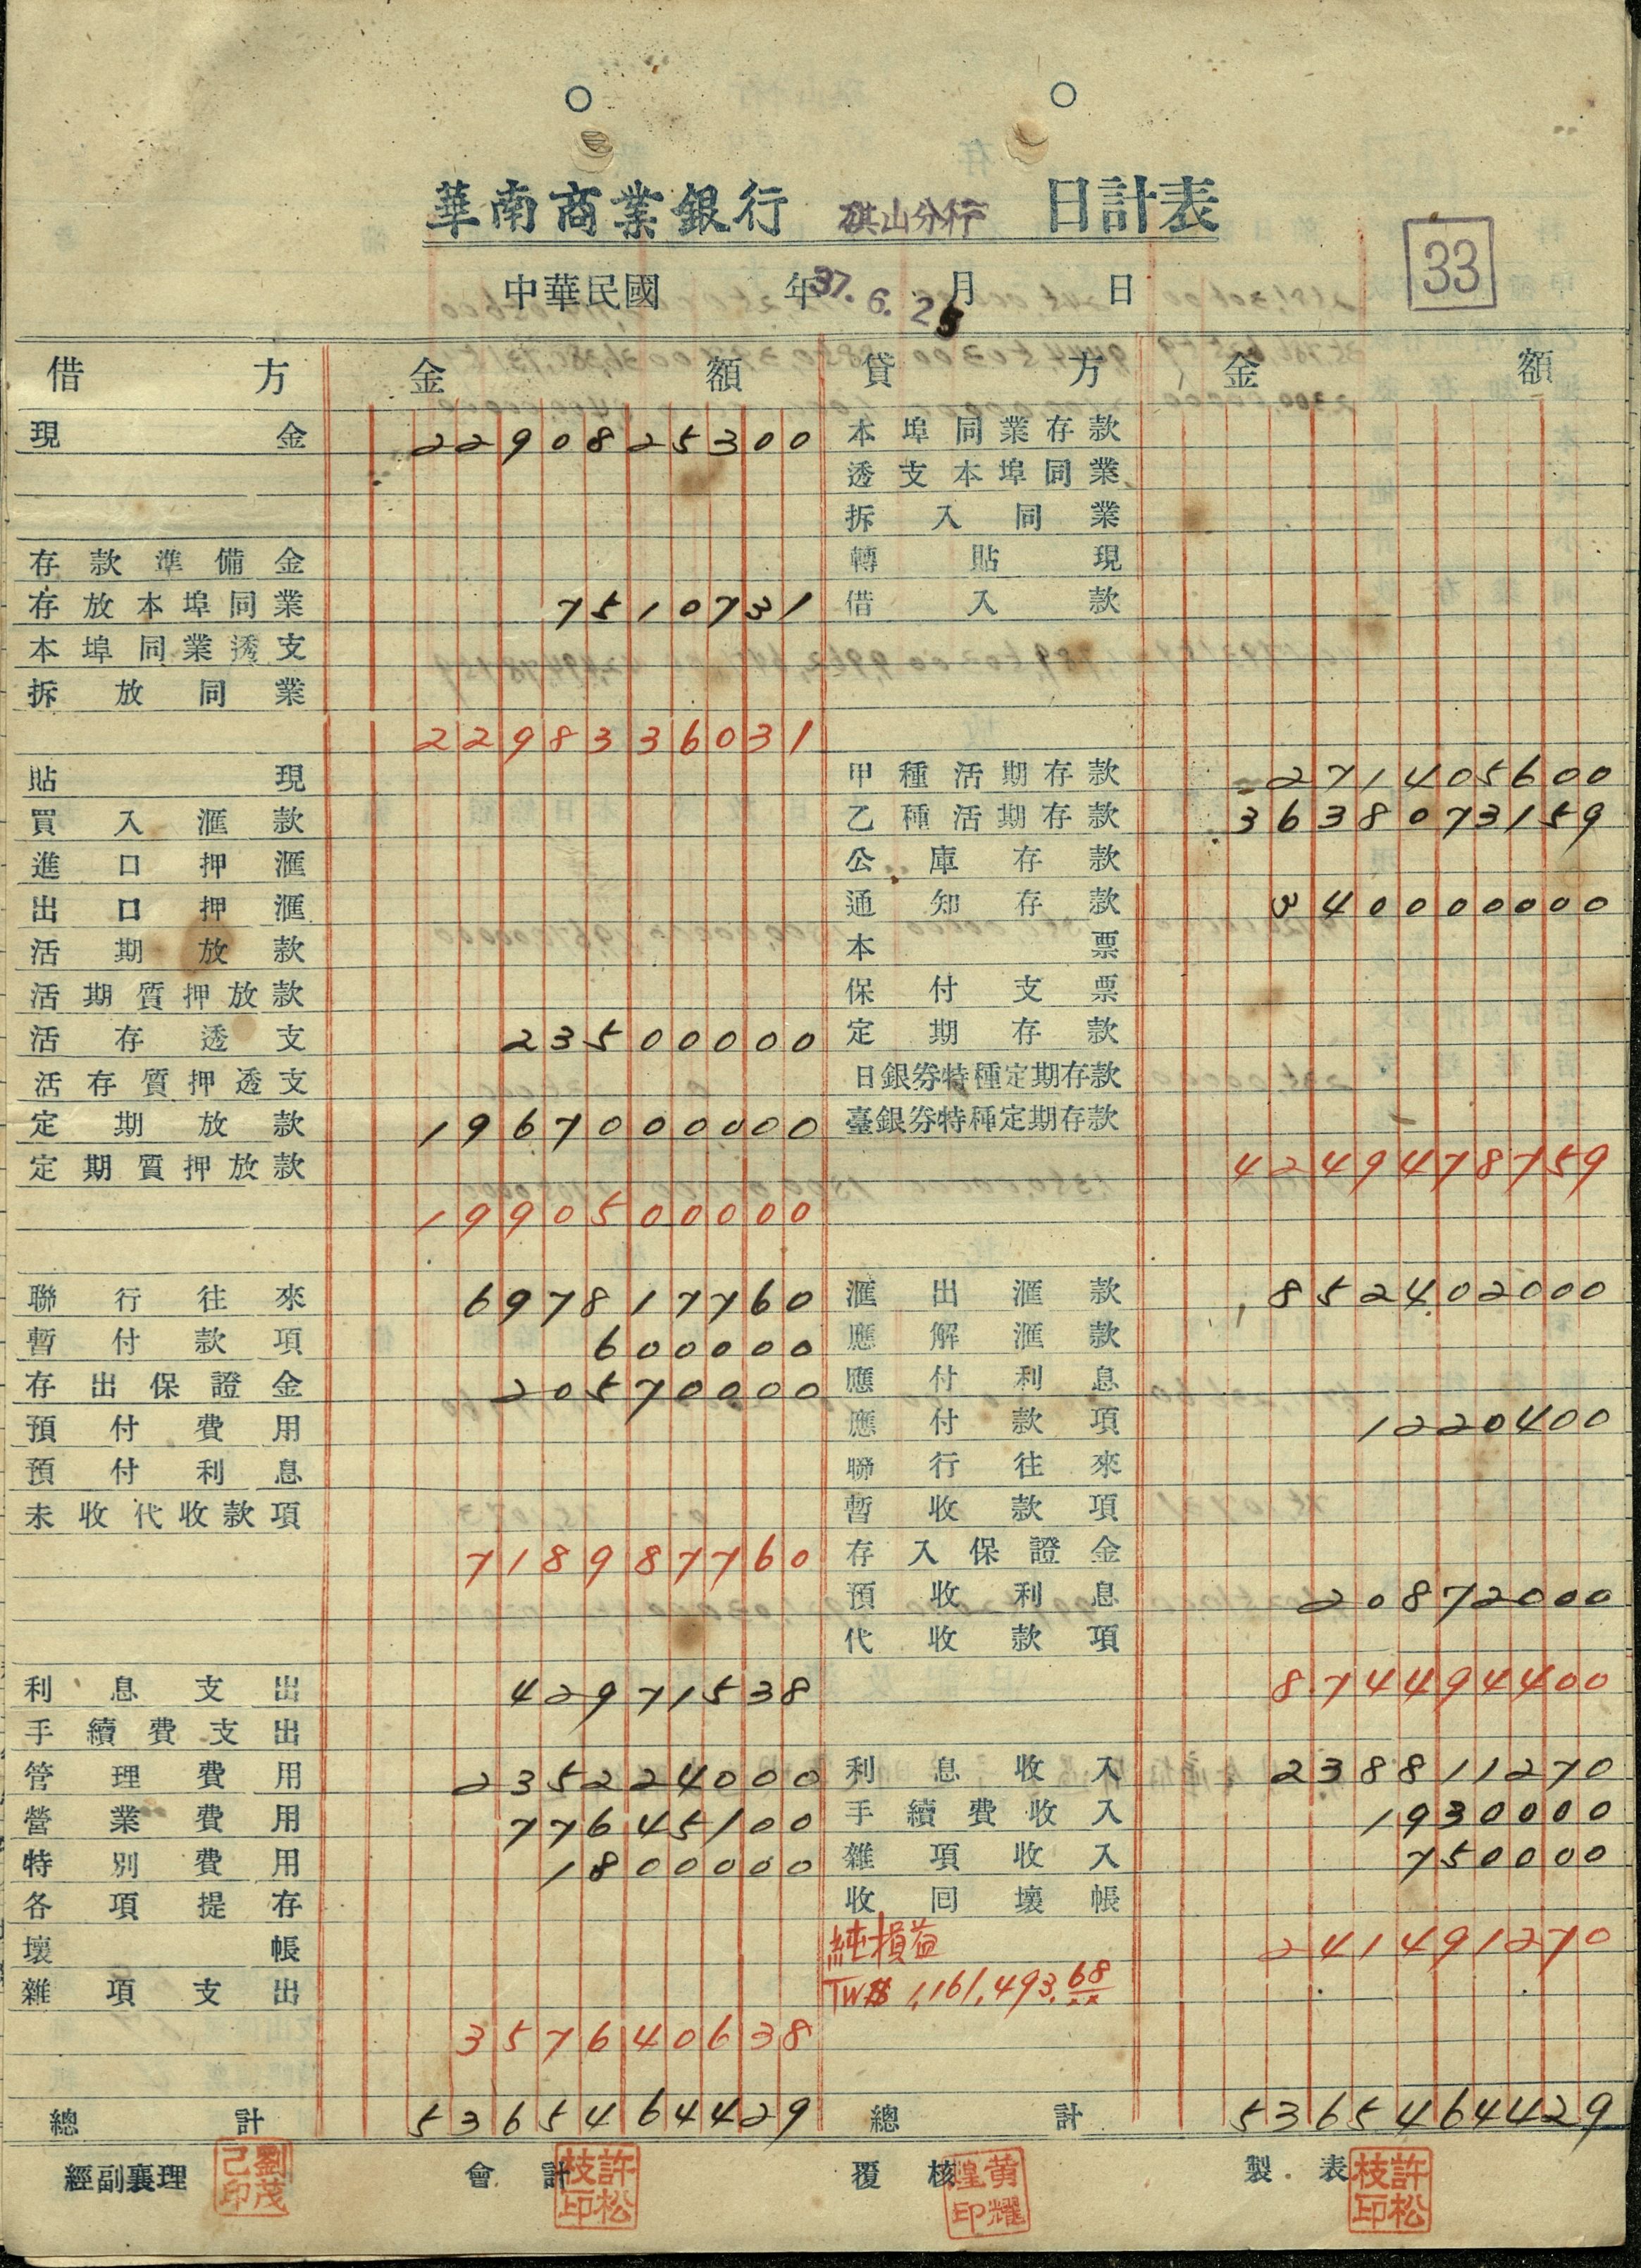 華南商業銀行 旗山分行 日計表
33
中華民國 年 月 日
37. 6. 25
借方 金額 貸方 金額
現金 2290825300 本埠同業存款
透支本埠同業
拆入同業
存款準備金 轉貼現
存放本埠同業 7510731 借入款
本埠同業透支
拆放同業
2298336031
貼現 甲種活期存款 271405600
買入滙款 乙種活期存款 3638073159
進口押滙 公庫存款
出口押滙 通知存款 340000000
活期放款 本票
活期質押放款 保付支票
活存透支 23500000 定期存款
活存質押透支 日銀券特種定期存款
定期放款 1967000000 臺銀券特種定期存款
定期質押放款 4249478759
1990500000
聯行往來 697817760 滙出滙款 852402000
暫付款項 600000 應解滙款
存出保證金 20570000 應付利息
預付費用 應付款項 1220400
預付利息 聯行往來
未收代收款項 暫收款項
718987760 存入保證金
預收利息 20872000
代收款項
利息支出 42971538 874494400
手續費支出
管理費用 235224000 利息收入 238811270
營業費用 77645100 手續費收入 1930000
特別費用 1800000 雜項收入 750000
各項提存 收回壞帳
壞帳 純損益 241491270
雜項支出 TW$ 1,161,493.68
357640638
總計 5365464429 總計 5365464429
經副襄理 劉茂己印 會計 許松枝印 覆核 黄耀煌印 製表 許松枝印